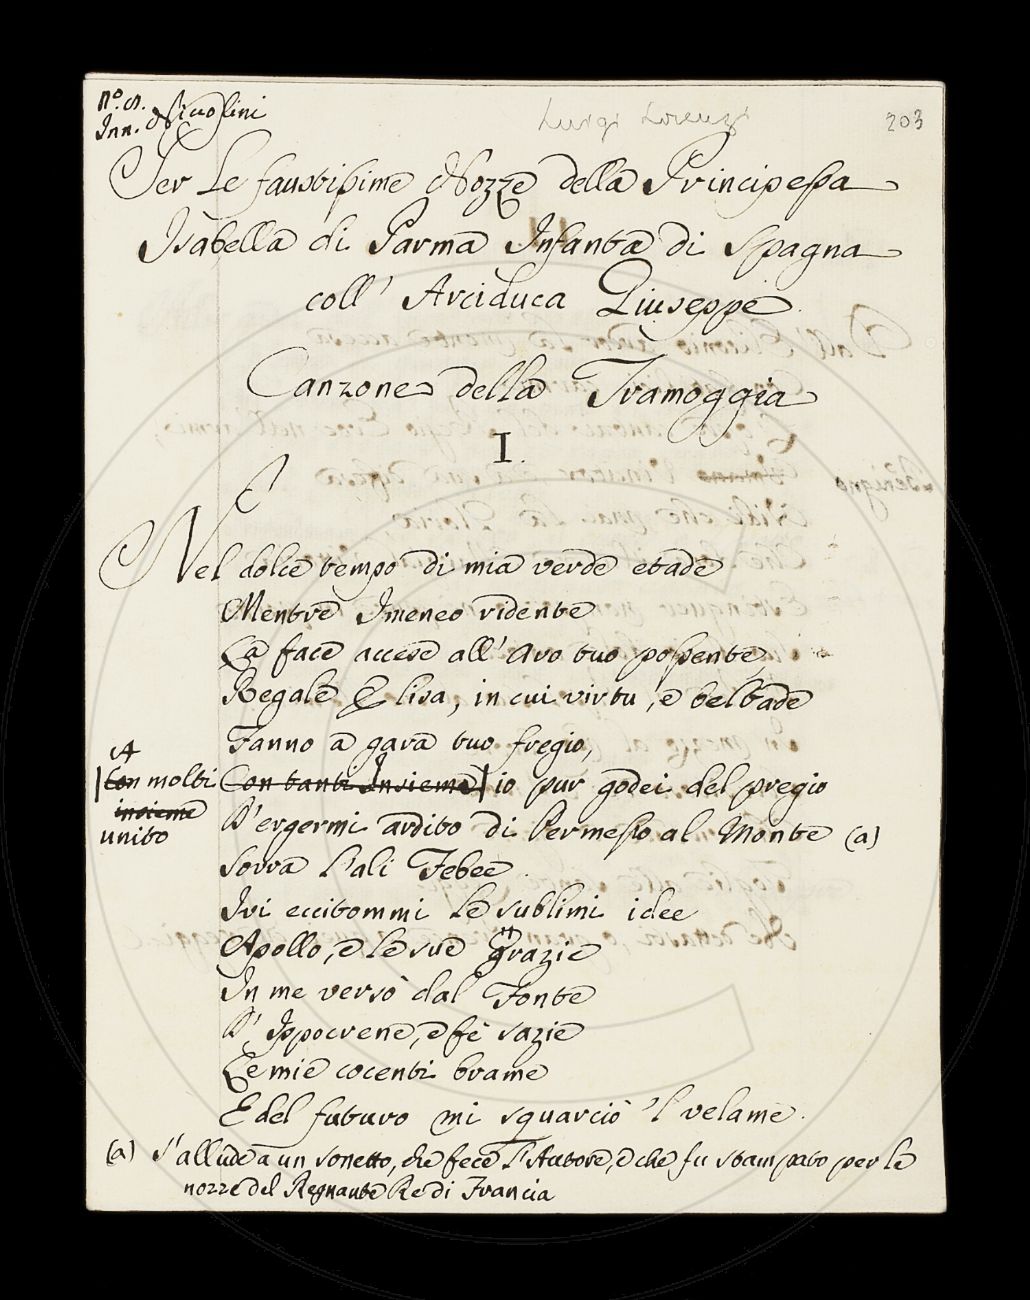 Luigi Lorenzi
203
Per Le faustissime Nozze della Principessa
Isabella di Parma Infanta di Spagna
coll' Arciduca Giuseppe
Canzone della Tramoggia
I.
Nel dolce tempo di mia verde etade
Mentre Imeneo ridente
La face accese all' Avo tuo possente
Regale Elisa, in cui virtu, e beltade
Fanno a gara tuo fregio,
Con molti Con tanti Insieme io pur godei del pregio
insieme
unito
D'ergermi ardito di Permesso al Monte (a)
Sovra l'ali Febee.
Ivi eccitommi le sublimi idee
Apollo, e le sue Grazie
In me versò dal Fonte
D' Ippocrene, e fè sazie
Le mie cocenti brame
E del futuro mi squarciò 'l velame.
(a) S'allude a un sonetto, che fece l'Autore, e che fu stampato per le
nozze del Regnante Re di Francia